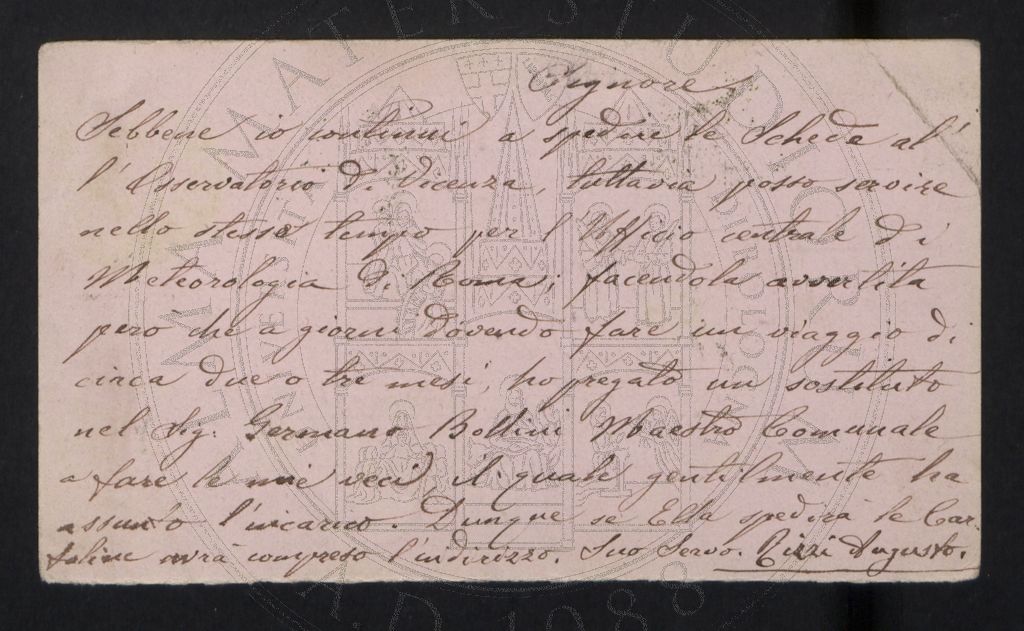 Signore
Sebbene io continui a spedire le Schede al
l'Osservatorio di Vicenza, tuttavia posso servire
nello stesso tempo per l'Ufficio centrale di
Meteorologia di Roma; facendola avvertita
però che a giorni dovendo fare un viaggio di
circa due o tre mesi, ho pregato un sostituto
nel Sig. Germano Bollini Maestro Comunale
a fare le mie veci, il quale gentilmente ha
assunto l'incarico. Dunque se Ella spedirà le Car-
toline avrà compreso l'indirizzo. Suo Servo. Rizzi Augusto.
ALMA MATER STUDIORUM
A.D. 1088